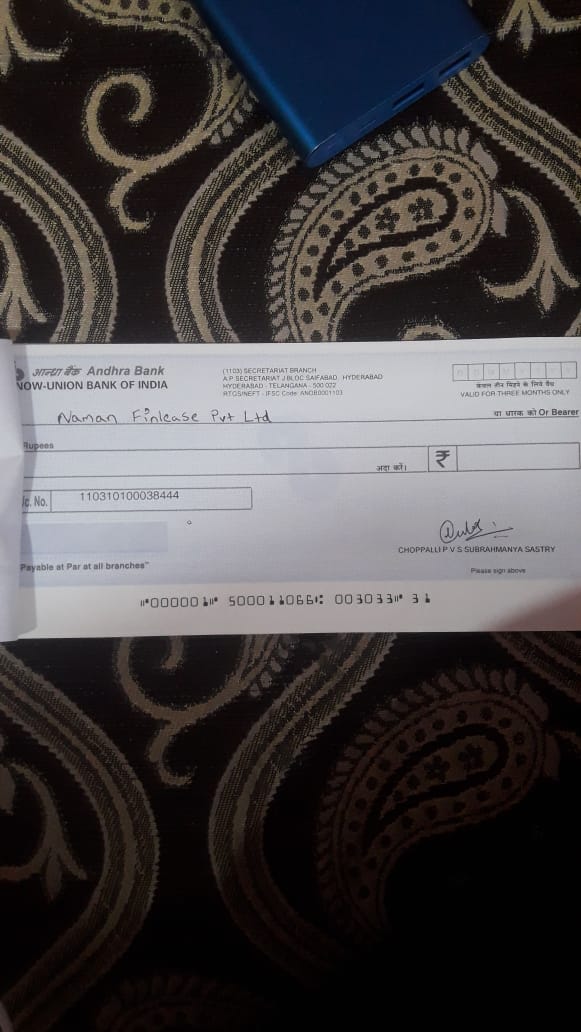 आन्ध्रा बैंक Andhra Bank
NOW-UNION BANK OF INDIA
(1103) SECRETARIAT BRANCH
A.P. SECRETARIAT J BLOC SAIFABAD, HYDERABAD
HYDERABAD - TELANGANA - 500 022
RTGS/NEFT - IFSC Code: ANDB0001103
केवल तीन महिने के लिये वैध
VALID FOR THREE MONTHS ONLY
Naman Finlease Pvt Ltd
या धारक को Or Bearer
Rupees
अदा करें।
₹
/c. No.
110310100038444
CHOPPALLI P V S SUBRAHMANYA SASTRY
Payable at Par at all branches"
Please sign above
⑈000001⑈ 500011066⑆ 003033⑈ 31